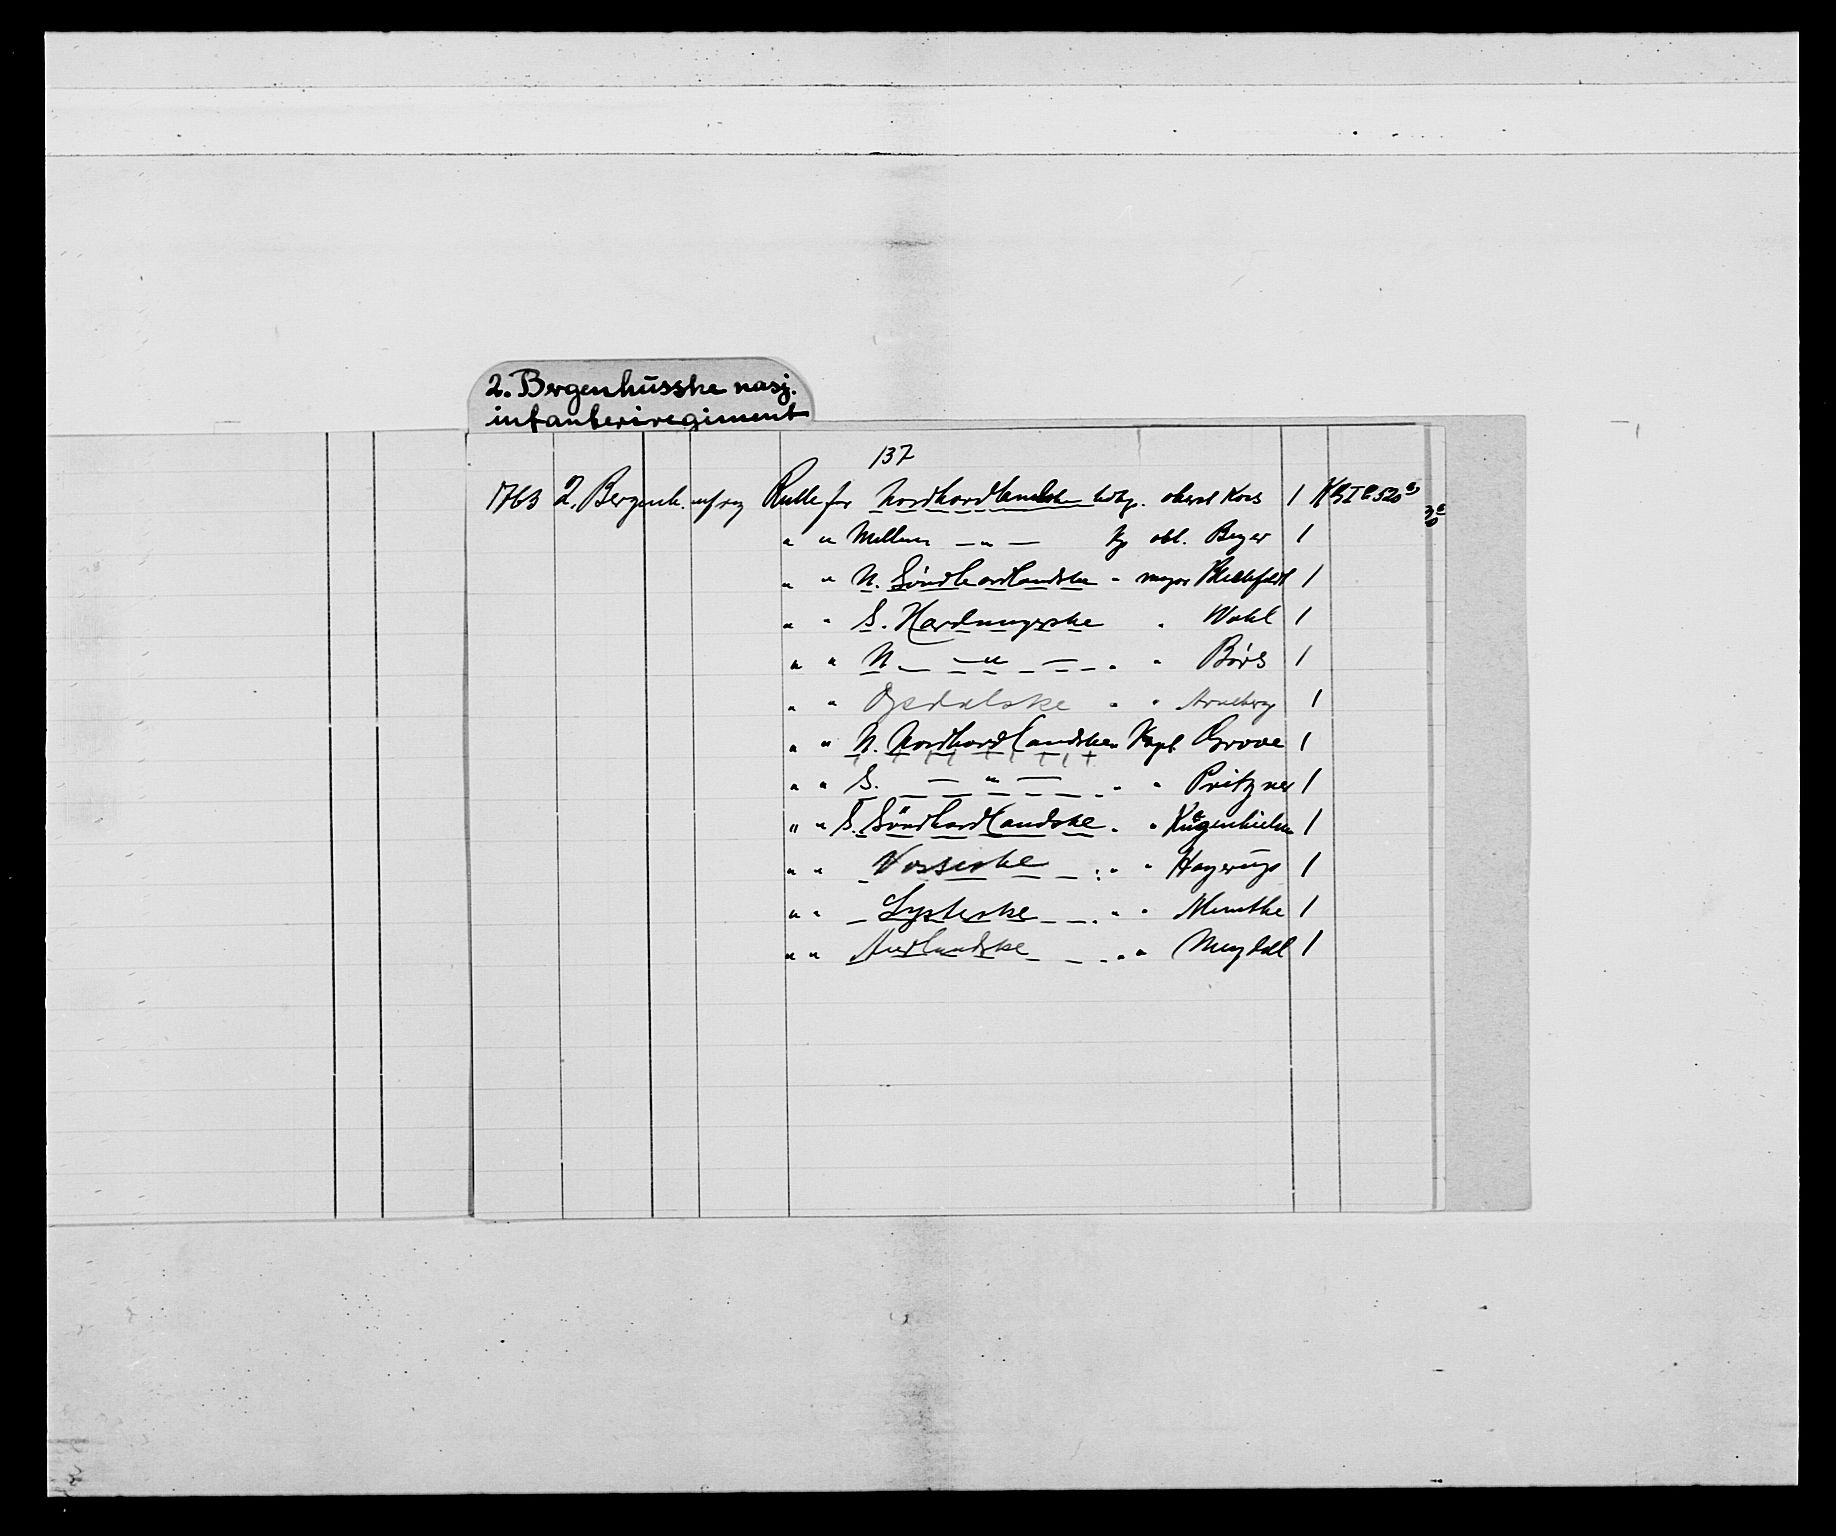 2. Bergenhūsske nasj.
infanteriregiment
137
1763 2. Bergenh. inf reg Rulle for Nordhordlandske livkp. oberst Kors 1
" " Mellem — " — kp obl. Beyer 1
" " N. Söndhordlandske " major Blechfeldt 1
" " S. Hardangerske " Wohl 1
" " N. — " — " " Börs 1
" " Opdalske " " Arneberg 1
" " N. Nordhordlandske " Kapt Grove 1
" " S. — " — " " Pritzner 1
" " S. Söndhordlandske " " Krūgenhielm 1
" " Vosseske " " Hagerūp 1
" " Lysterske " " Munthe 1
" " Aurlandske " " Mugdal 1